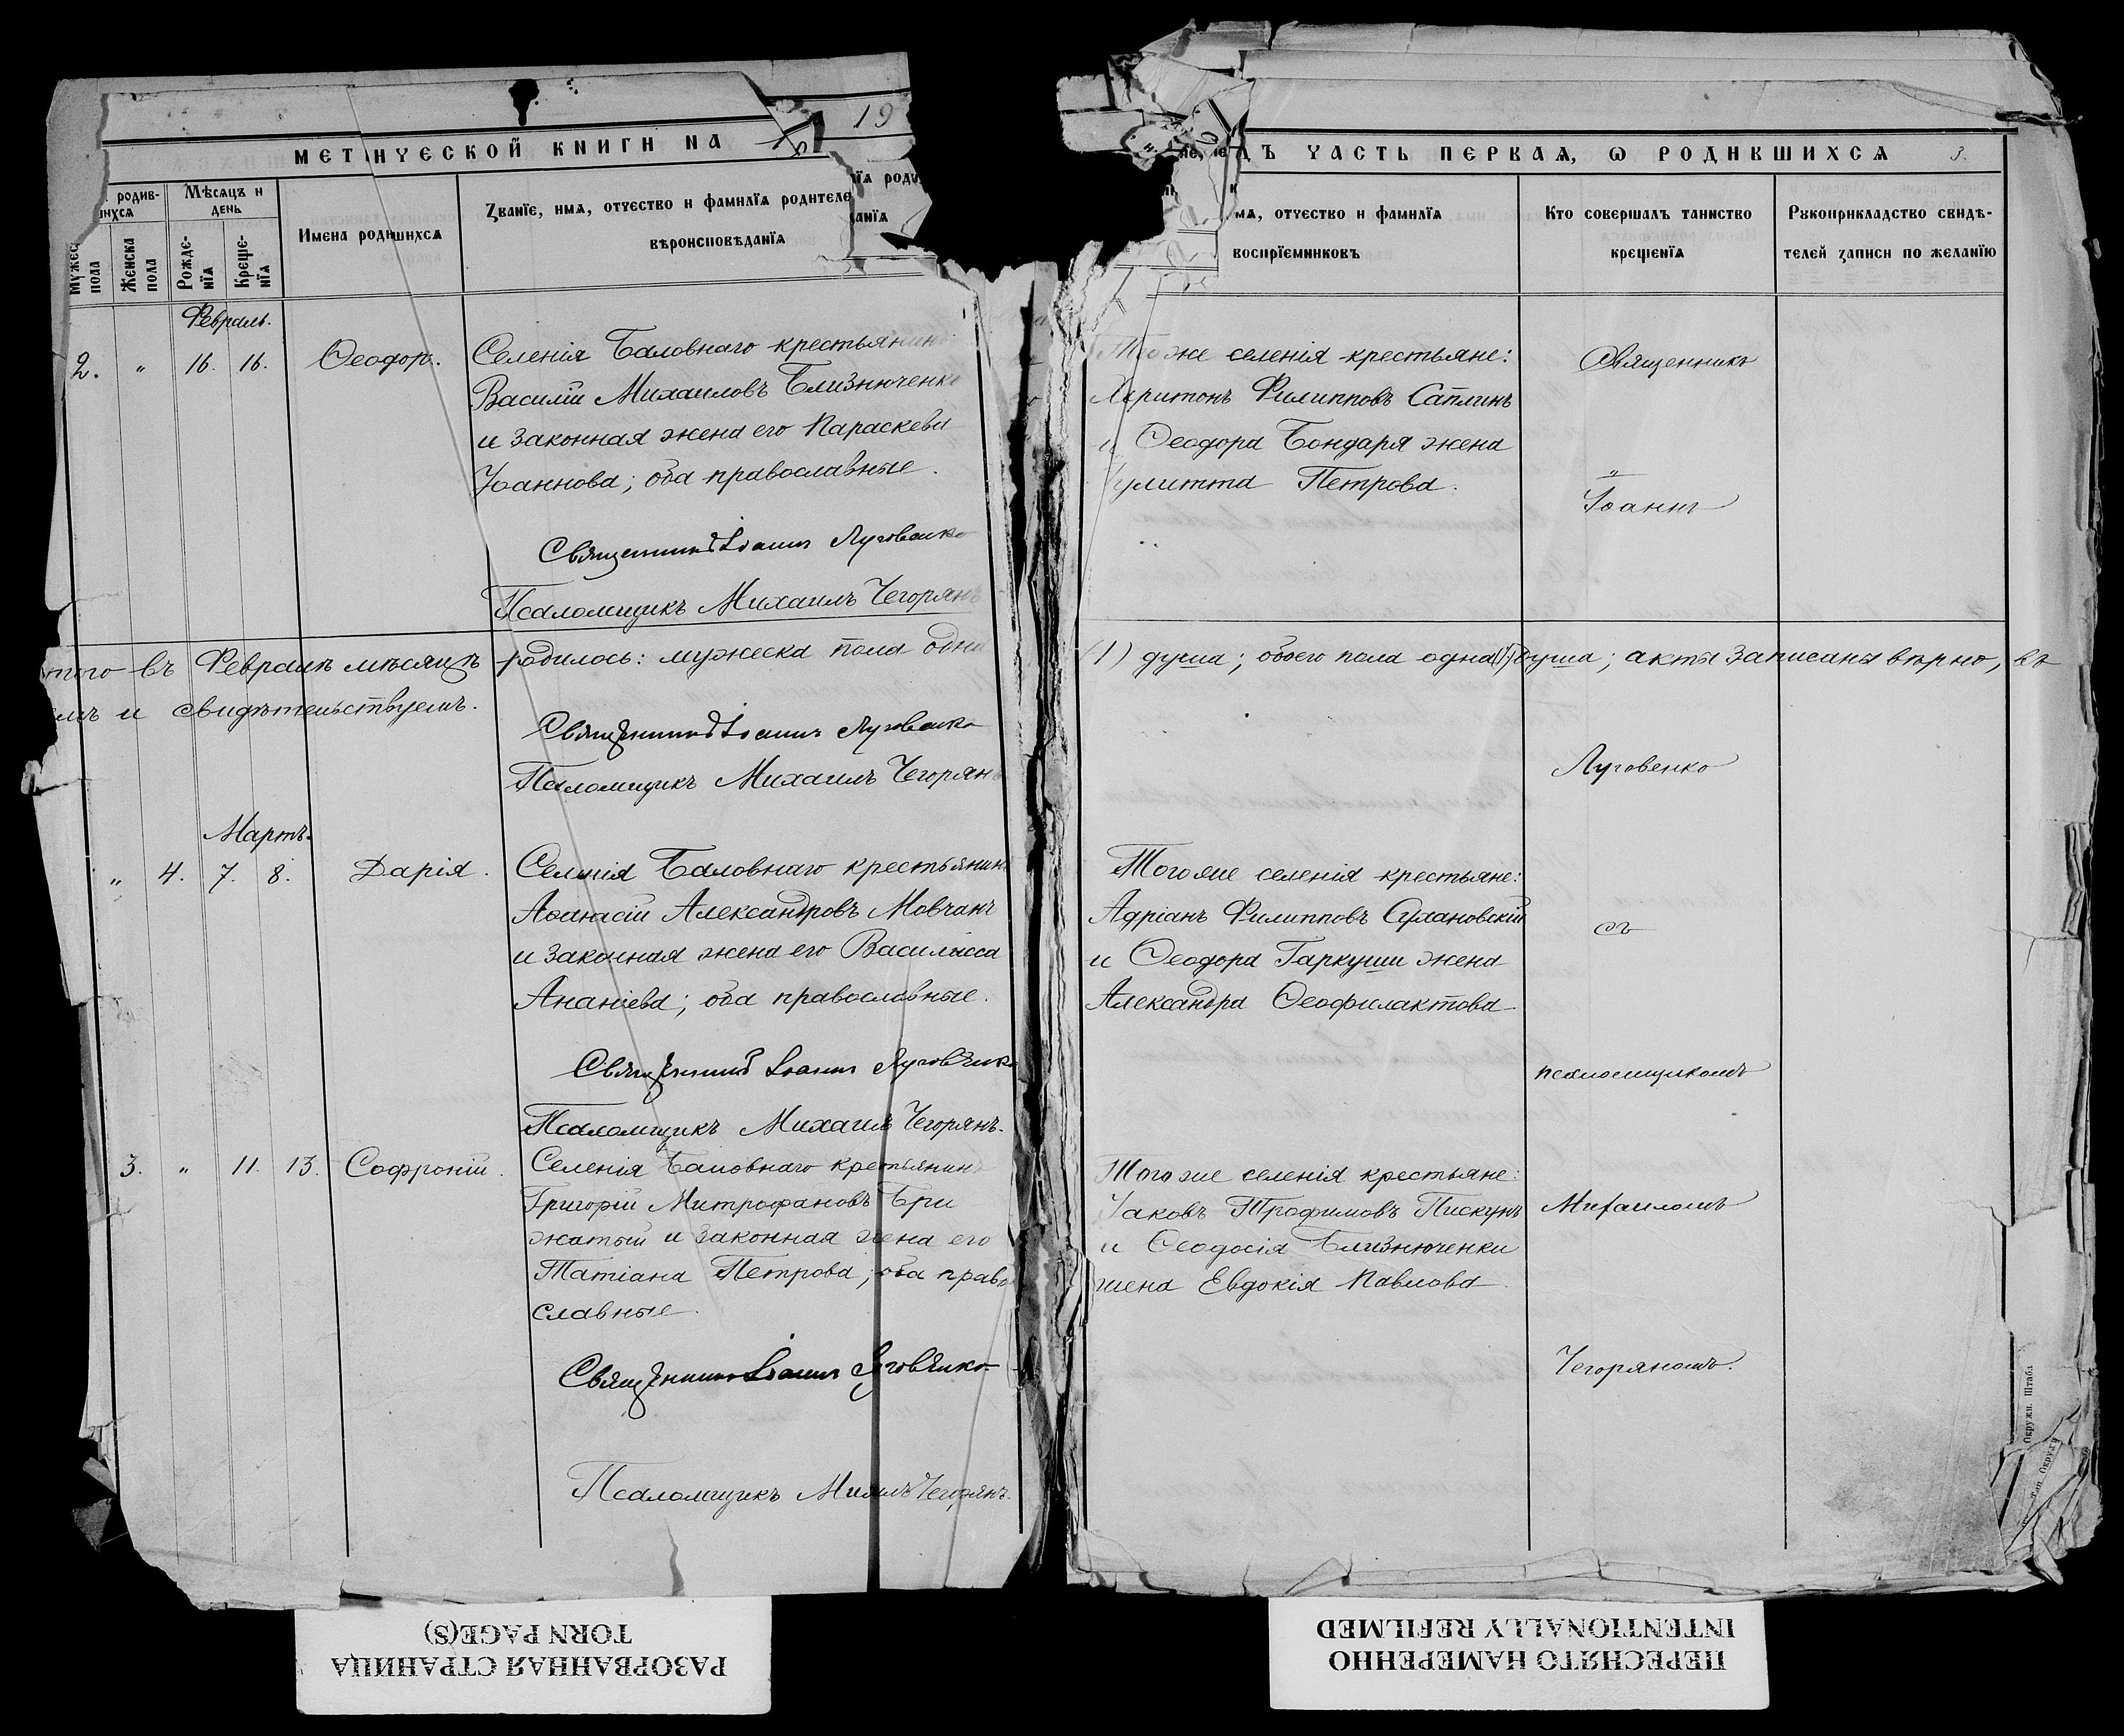 19
МЕТРИЧЕСКОЙ КНИГИ НА
ДЪ ЧАСТЬ ПЕРВАЯ, О РОДИВШИХСЯ
3.
родив-
шихся
Мѣсяцъ и
день
Мужес
пола
Женска
пола
Рожде-
нїя
Креще-
нїя
Имена родившихся
Званїе, имя, отчество и фамилїя родителе
вѣроисповѣданїя
мя, отчество и фамилїя
воспрїемниковъ
Кто совершалъ таинство
крещенїя
Рукоприкладство свидѣ-
телей записи по желанїю
Февраль.
2. " 16. 16. Ѳеодор.
Селенія Баловнаго крестьянинъ
Василій Михаиловъ Близнюченко
и законная жена его Параскева
Іоаннова; оба православные.
Священникъ Іоаннъ Луговенко
Псаломщикъ Михаилъ Чегорянъ
Того же селенія крестьяне:
Харитонъ Филипповъ Саплинъ
и Ѳеодора Бондаря жена
Іулитта Петрова.
Священникъ
"
Іоаннъ
того въ Февралѣ мѣсяцѣ родилось: мужеска пола одна (1) душа; обоего пола одна (1) душа; акты записаны вѣрно, въ
мъ и свидѣтельствуемъ.
Священникъ Іоаннъ Луговенко
Псаломщикъ Михаилъ Чегорянъ
Луговенко
Мартъ.
" 4. 7. 8. Дарія.
Селенія Баловнаго крестьянинъ
Аѳанасій Александровъ Мовчанъ
и законная жена его Василисса
Ананіева; оба православные.
Священникъ Іоаннъ Луговенко
Псаломщикъ Михаилъ Чегорянъ.
Того же селенія крестьяне:
Адріанъ Филипповъ Сухановскій
и Ѳеодора Гаркуши жена
Александра Ѳеофилактова
съ
псаломщикомъ
3. " 11. 13. Софроній.
Селенія Баловнаго крестьянинъ
Григорій Митрофановъ Бри
жатый и законная жена его
Татіана Петрова; оба право
славные.
Священникъ Іоаннъ Луговенко
Псаломщикъ Михаилъ Чегорянъ.
Того же селенія крестьяне:
Іаковъ Трофимовъ Пискунъ
и Ѳеодосія Близнюченки
жена Евдокія Павлова.
Михаиломъ
Чегоряномъ.
Окружн. Штаба
Тип. Окружн
РАЗОРВАННАЯ СТРАНИЦА
TORN PAGE(S)
ПЕРЕСНЯТО НАМЕРЕННО
INTENTIONALLY REFILMED